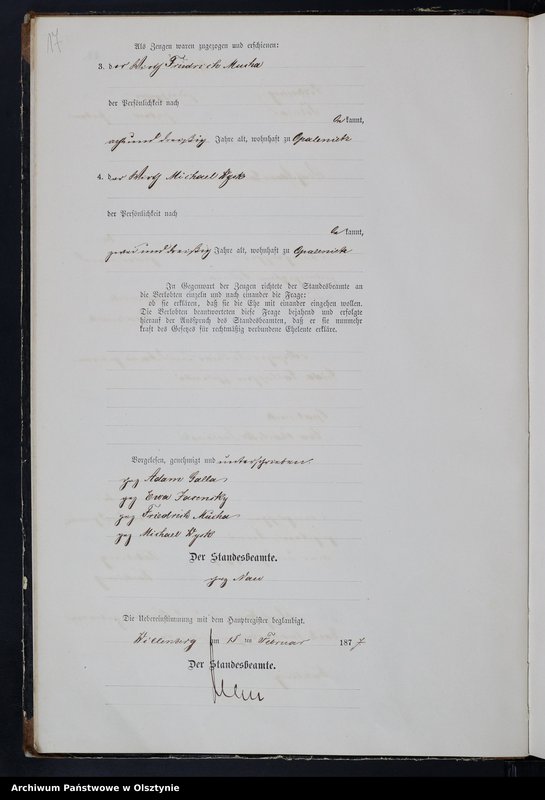 17
Als Zeugen waren zugezogen und erschienen:
3. der Wirth Friedrich Mucha
der Persönlichkeit nach
be kannt,
acht und dreißig Jahre alt, wohnhaft zu Opalenietz
4. der Wirth Michael
der Persönlichkeit nach
be kannt,
zwei und dreißig Jahre alt, wohnhaft zu Opalenietz
In Gegenwart der Zeugen richtete der Standesbeamte an
die Verlobten einzeln und nach einander die Frage:
ob sie erklären, daß sie die Ehe mit einander eingehen wollen.
Die Verlobten beantworteten diese Frage bejahend und erfolgte
hierauf der Ausspruch des Standesbeamten, daß er sie nunmehr
kraft des Gesetzes für rechtmäßig verbundene Eheleute erkläre.
Vorgelesen, genehmigt und unterschrieben.
gez Adam Galla
gez Ewa Jasensky
gez Friedrich Mucha
gez Michael
Der Standesbeamte.
gez
Die Uebereinstimmung mit dem Hauptregister beglaubigt.
Willenberg am 15 ten Februar 1877
Der Standesbeamte.
Archiwum Państwowe w Olsztynie